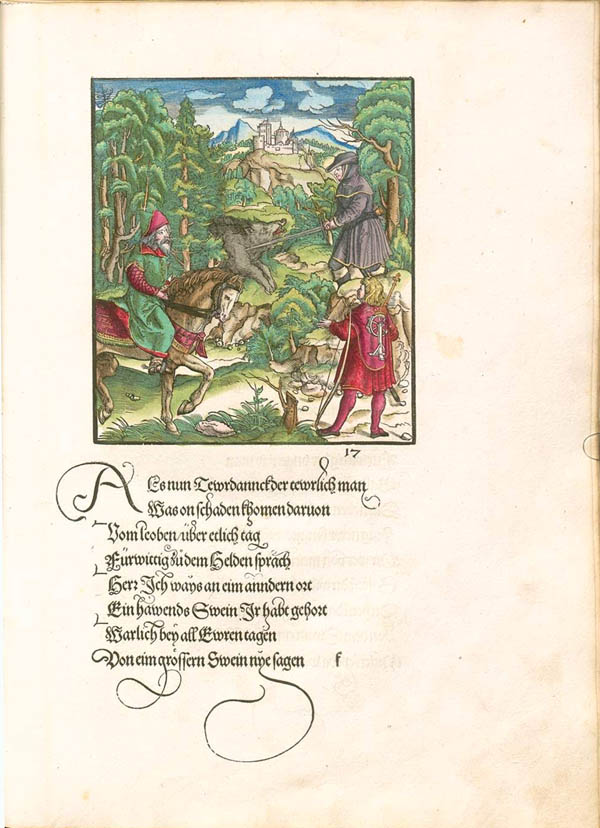 17
Als nun Tewrdannckh der tewrlich man
Was on schaden khomen daruon
Vom leoben/ über etlich tag
Fürwittig zů dem Helden sprach
Herr Ich ways an eim anndern ort
Ein hawends Swein Ir habt gehort
Warlich bey all Ewren tagen
Von eim grössern Swein nye sagen f